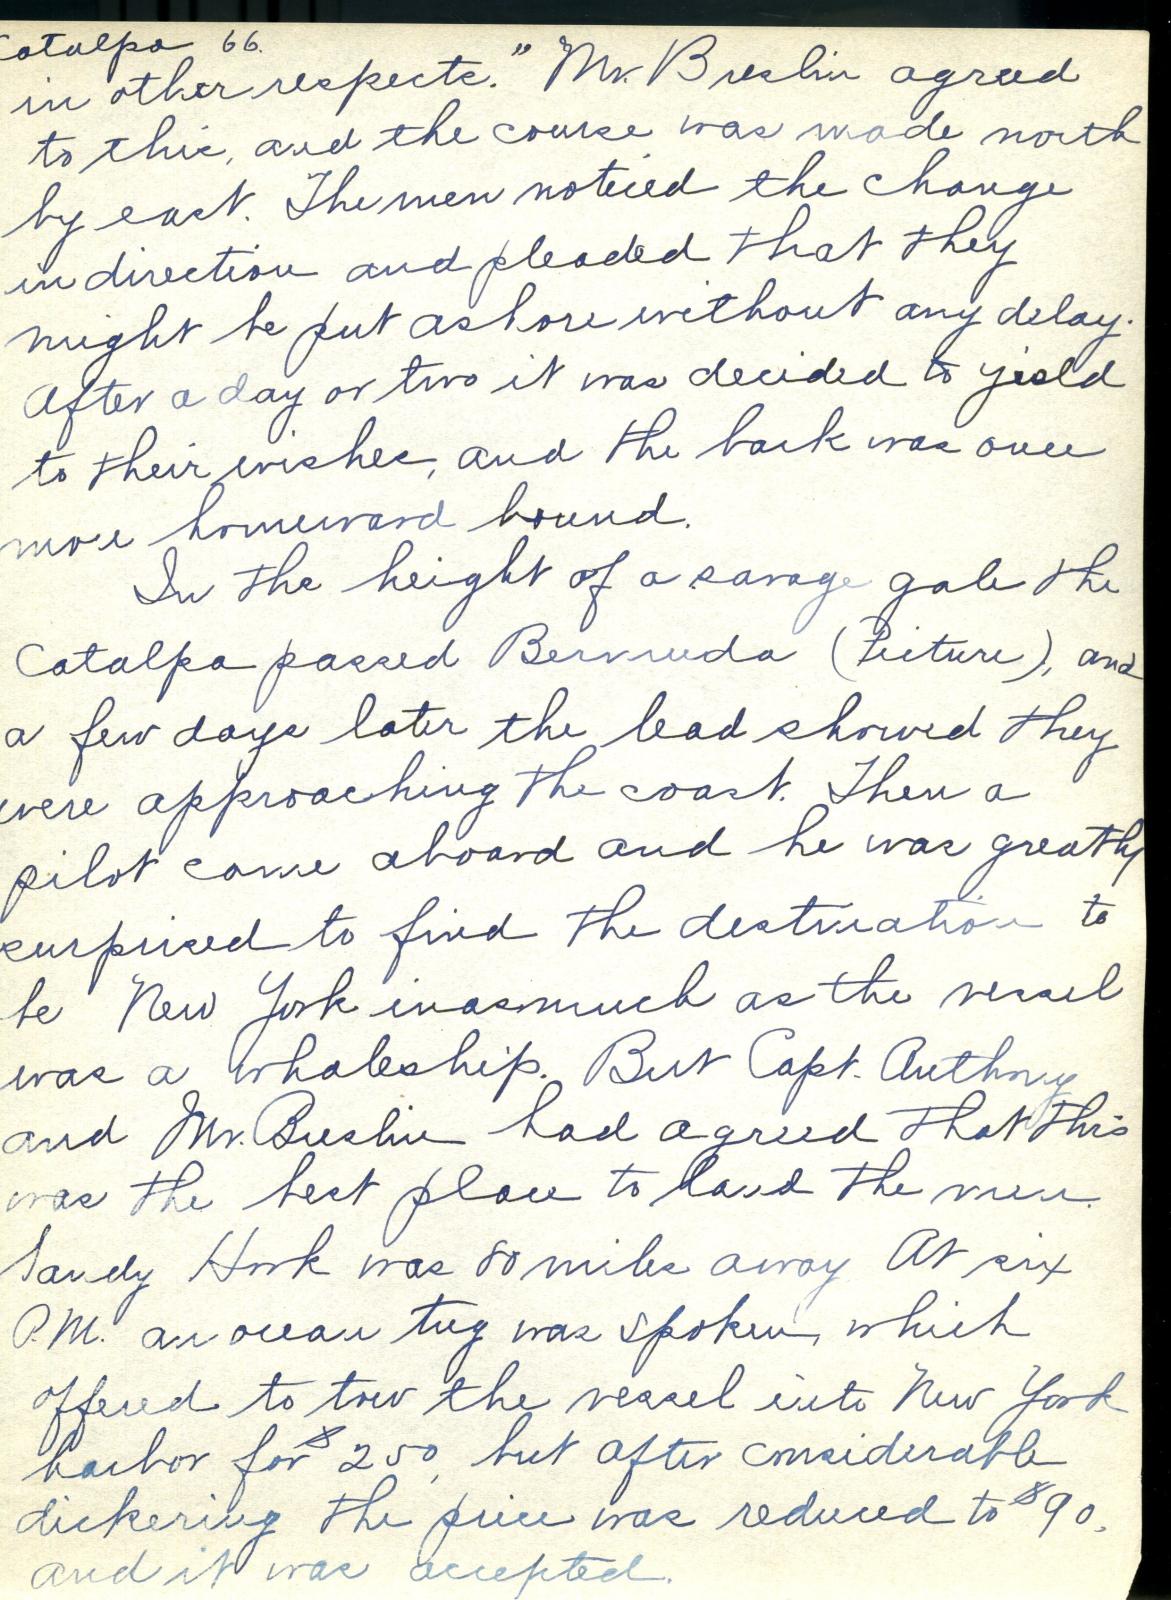 Catalpa 66.
in other respects." Mr. Breslin agreed
to this, and the course was made north
by east. The men noticed the change
in direction and pleaded that they
might be put ashore without any delay.
After a day or two it was decided to yield
to their wishes, and the bark was once
more homeward bound.
In the height of a savage gale the
Catalpa passed Bermuda (Picture), and
a few days later the lead showed they
were approaching the coast. Then a
pilot came aboard and he was greatly
surprised to find the destination to
be New York inasmuch as the vessel
was a whaleship. But Capt. Anthony
and Mr. Breslin had agreed that this
was the best place to land the men.
Sandy Hook was 80 miles away At six
P.M. an ocean tug was spoken, which
offered to tow the vessel into New York
harbor for $250, but after considerable
dickering the price was reduced to $90,
and it was accepted.